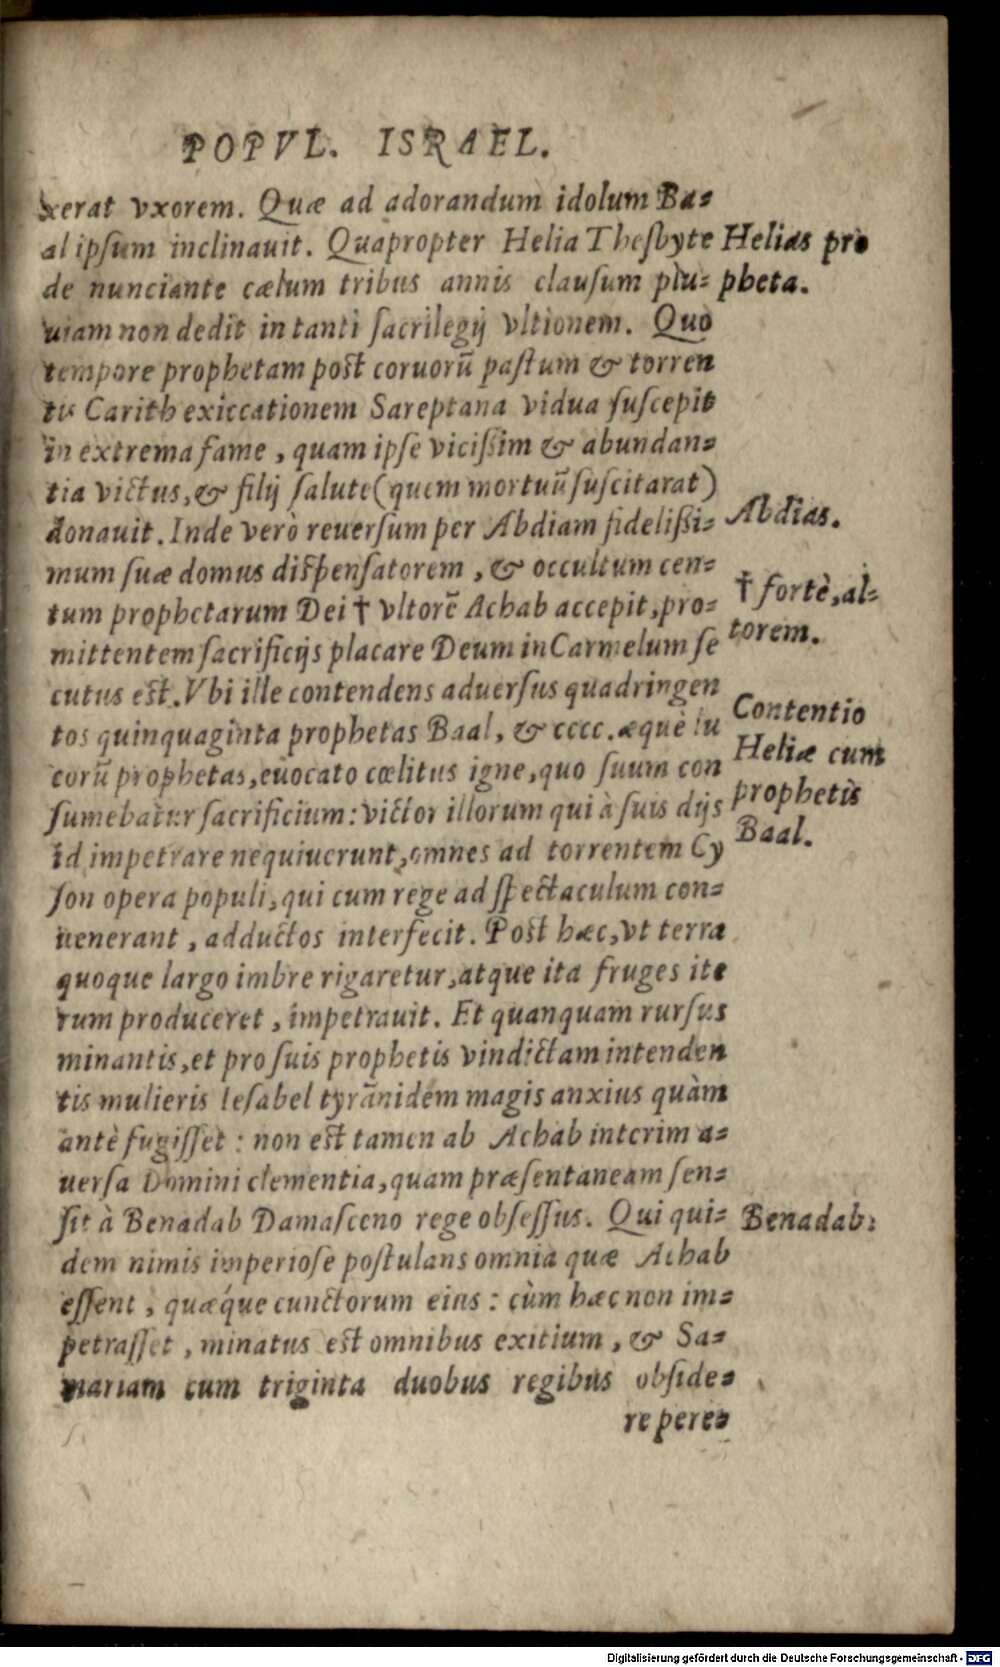 POPVL. ISRAEL.
xerat vxorem. Quæ ad adorandum idolum Ba=
al ipsum inclinauit. Quapropter Helia Thesbyte
de nunciante cælum tribus annis clausum plu=
uiam non dedit in tanti sacrilegij vltionem. Quo
tempore prophetam post coruorū pastum & torren
tis Carith exiccationem Sareptana vidua suscepit
in extrema fame, quam ipse vicißim & abundan=
tia victus, & filij salute (quem mortuū suscitarat)
donauit. Inde verò reuersum per Abdiam fidelißi=
mum suæ domus dispensatorem, & occultum cen=
tum prophetarum Dei † vltorē Achab accepit, pro=
mittentem sacrificijs placare Deum in Carmelum se
cutus est. Vbi ille contendens aduersus quadringen
tos quinquaginta prophetas Baal, & cccc. æquè lu
corū prophetas, euocato cœlitus igne, quo suum con
sumebatur sacrificium: victor illorum qui à suis dijs
id impetrare nequiuerunt, omnes ad torrentem Cy
son opera populi, qui cum rege ad spectaculum con=
uenerant, adductos interfecit. Post hæc, vt terra
quoque largo imbre rigaretur, atque ita fruges ite
rum produceret, impetrauit. Et quanquam rursus
minantis, et pro suis prophetis vindictam intenden
tis mulieris Iesabel tyrānidem magis anxius quàm
antè fugisset: non est tamen ab Achab interim a=
uersa Domini clementia, quam præsentaneam sen=
sit à Benadab Damasceno rege obsessus. Qui qui=
dem nimis imperiose postulans omnia quæ Achab
essent, quæque cunctorum eius: cùm hæc non im=
petrasset, minatus est omnibus exitium, & Sa=
mariam cum triginta duobus regibus obside=
re pere=
Helias pro
pheta.
Abdias.
† fortè, al=
torem.
Contentio
Heliæ cum
prophetis
Baal.
Benadab:
Digitalisierung gefördert durch die Deutsche Forschungsgemeinschaft - DFG